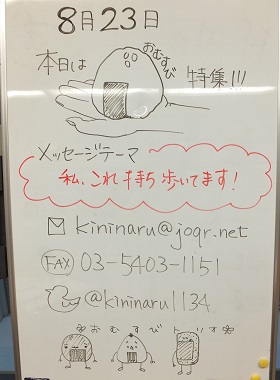 8月23日
本日は おむすび 特集!!!
メッセージテーマ
私、これ持ち歩いてます!
kininaru@joqr.net
FAX 03-5403-1151
@kininaru1134
おむすびトリオ